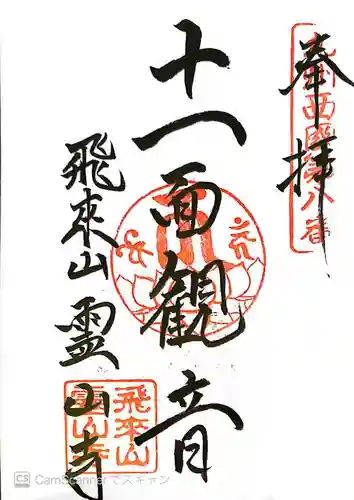 奉拝
九州西国第八番
十一面観音
飛來山霊山寺
飛來山
霊山寺
CS CamScannerでスキャン